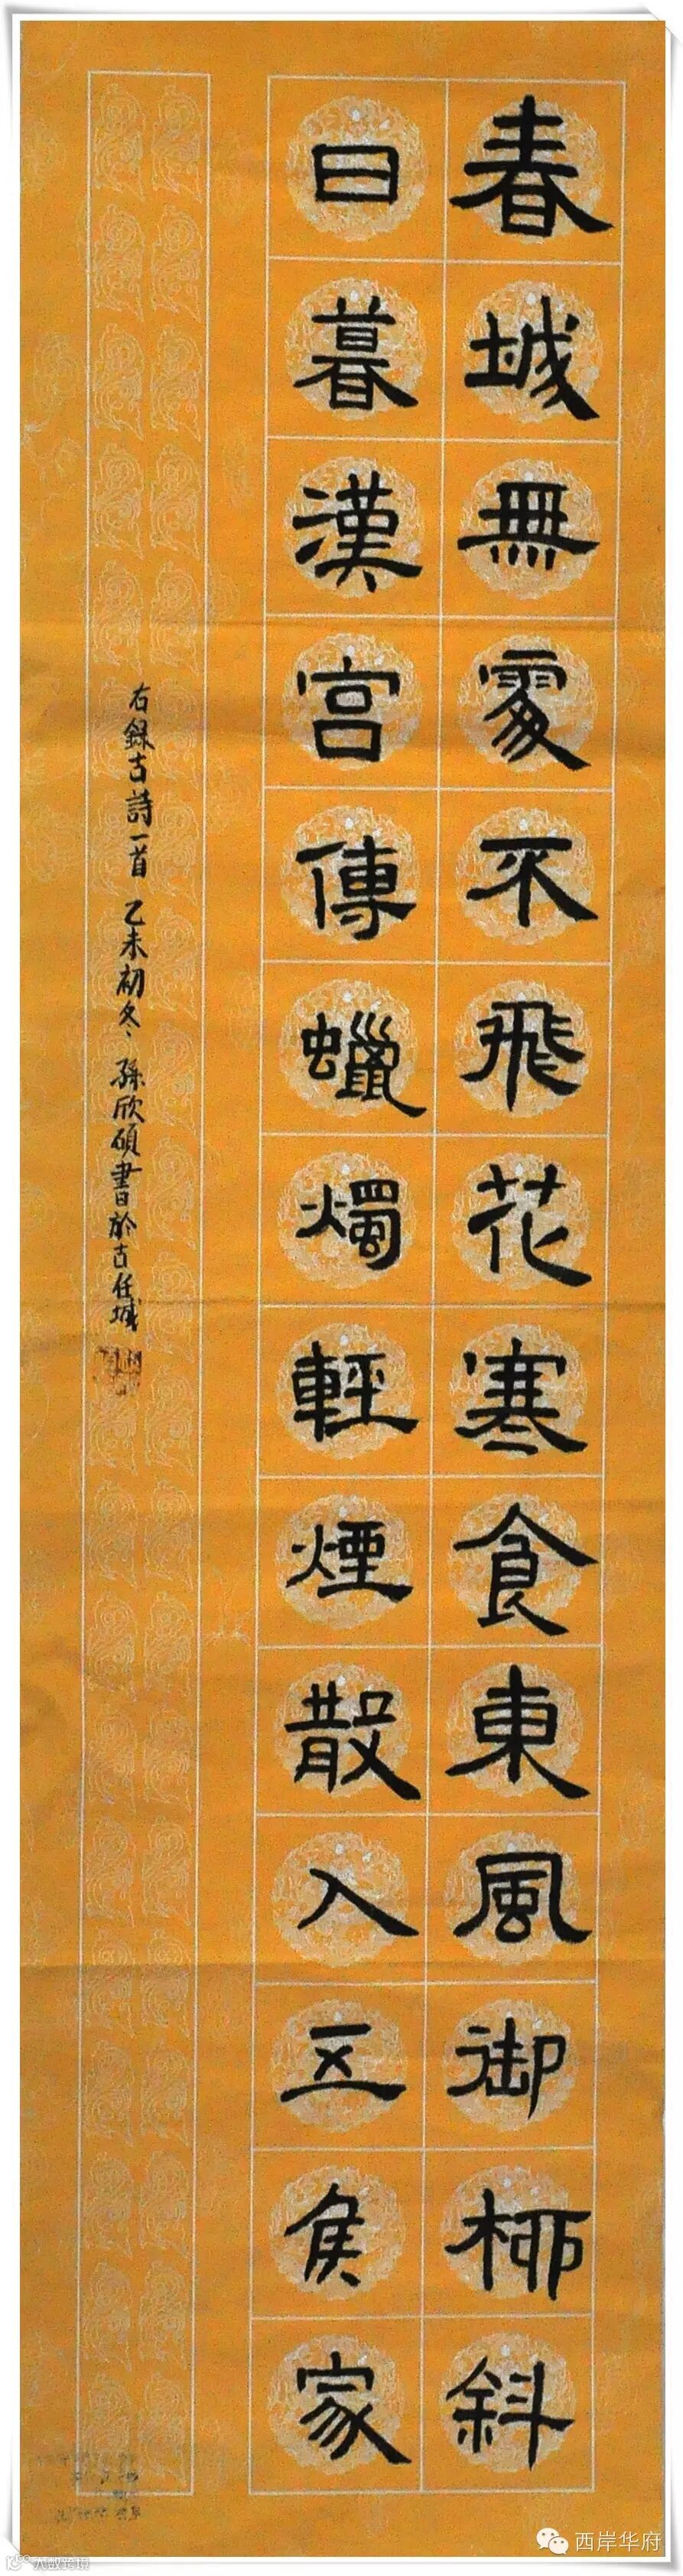 春城無處不飛花寒食東風御柳斜
日暮漢宮傳蠟燭輕煙散入五侯家
右録古詩一首 乙未初冬 孫欣碩書於古任城
西岸华府